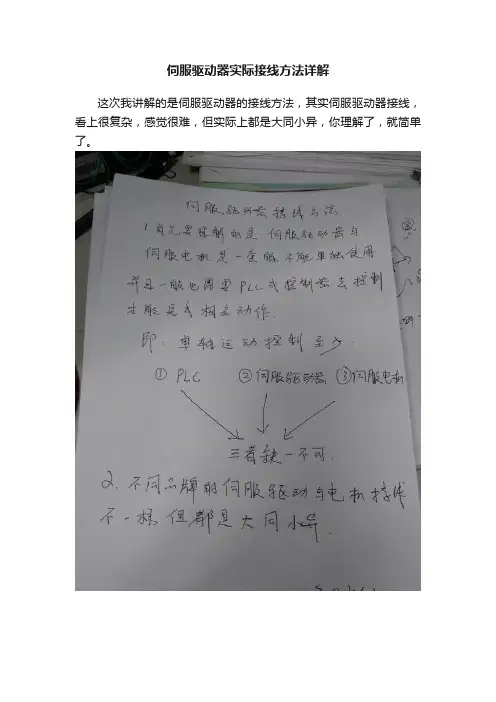 伺服驱动器实际接线方法详解
这次我讲解的是伺服驱动器的接线方法，其实伺服驱动器接线，
看上很复杂，感觉很难，但实际上都是大同小异，你理解了，就简单
了。
伺服驱动器接线方法
1.首先要理解的是 伺服驱动器与
伺服电机是一套的 不能单独使用
并且一般也需要PLC或控制器去控制
才能完成相应动作.
即：单轴运动控制至少：
① PLC ②伺服驱动器 ③伺服电机
三者缺一不可.
2、不同品牌的伺服驱动与电机接线
不一样 但都是大同小异.